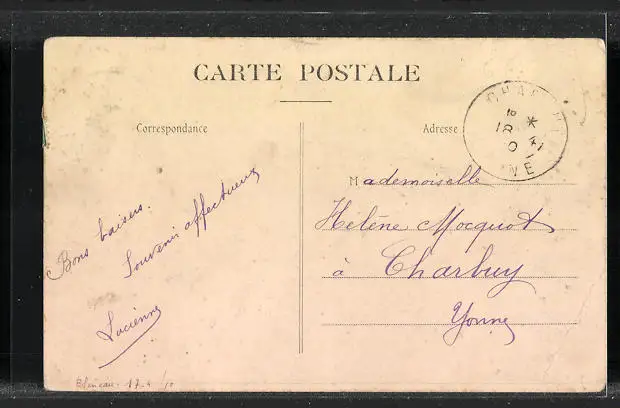 CARTE POSTALE
Correspondance
Adresse
Bons baisers.
Souvenir affectueux
Lucienne
Mademoiselle
Helène Mocquot
à Charbuy
Yonne
Bléneau 17-4 /10